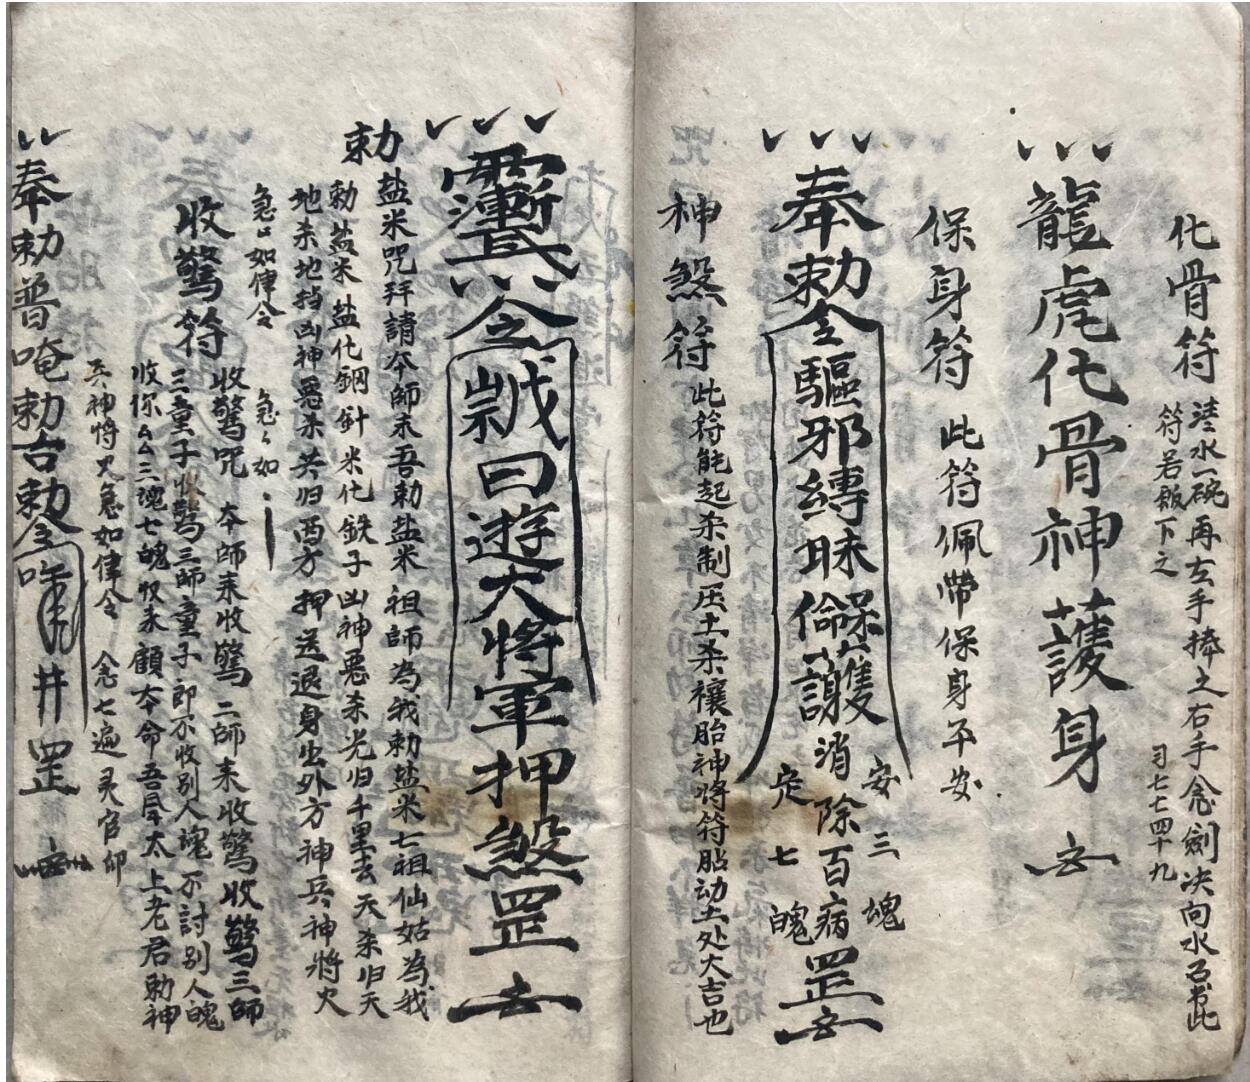 化骨符
盐水一碗再左手捧之右手念劍决向水否書此
符若飯下之
习七七四十九
龍虎化骨神護身
保身符 此符佩帶保身平安
奉勅令驅邪縛
保護消除百病罡
安三魂
定七魄
神煞符 此符能起杀制压土杀禳胎神将符貼动土处大吉也
令
曰遊大將軍押煞罡
勅盐米咒拜請夲師末吾勅盐米祖師為我勅盐米七祖仙姑為我
勅盐米盐化鋼針米化鉄子凶神悪杀光归千里去天杀归天
地杀地挡凶神悪杀共归西方押送退身出外方神兵神將火
急如律令 急如
收驚符
收驚咒 夲師耒收驚二師耒收驚收驚三師
三童子收驚三師童子即不收别人魂不討别人魄
收你厶厶三魂七魄收耒顧夲命吾奉太上老君勅神
兵神将火急如律令 念七遍灵官卯
奉勅普唵勅古勅令
井罡